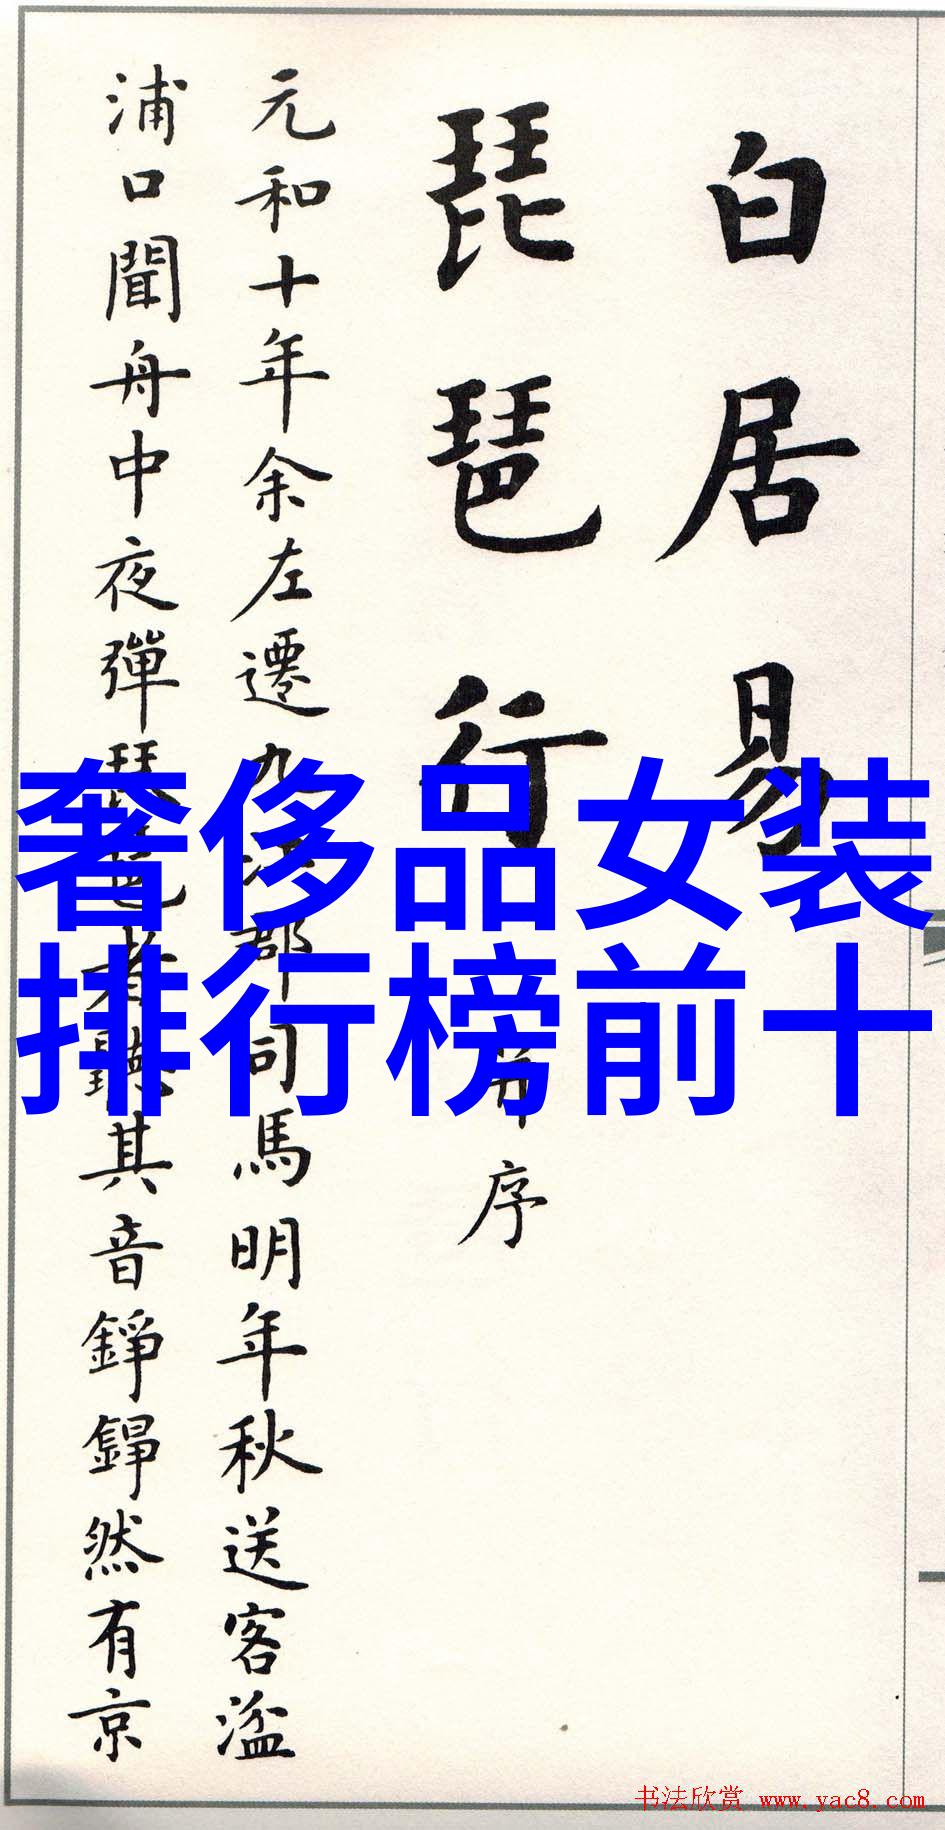 白居易
琵琶行
并序
元和十年余左遷九江郡司馬明年秋送客湓
浦口聞舟中夜彈琵琶者聽其音錚錚然有京
奢侈品女装
排行榜前十
书法欣赏 www.yac8.com